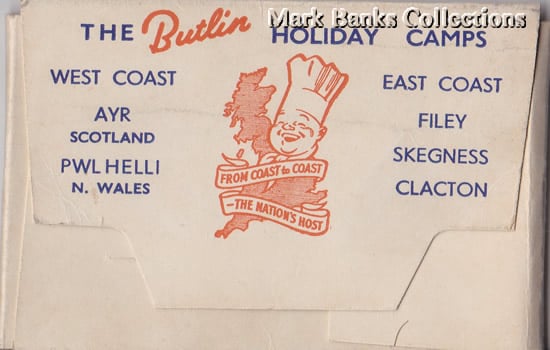 Mark Banks Collections
THE Butlin HOLIDAY CAMPS
WEST COAST
AYR
SCOTLAND
PWLHELLI
N. WALES
FROM COAST to COAST
—THE NATION'S HOST
EAST COAST
FILEY
SKEGNESS
CLACTON